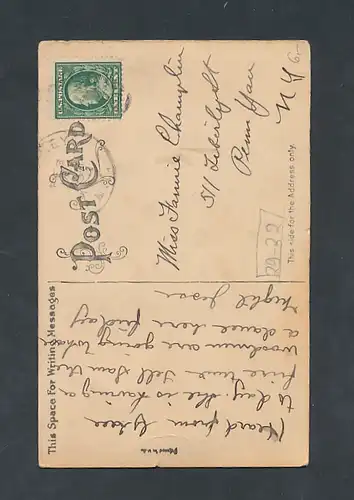 U.S. POSTAGE
1 CENT 1
POST CARD
Miss Fannie Champlin
511 Liberty St
Penn Yan
N Y
6-
29-22
This side for the Address only.
This Space For Writing Messages
Heard from
to day she is having a
fine time Tell Sam the
woodmen are going to have
a dance here friday
night